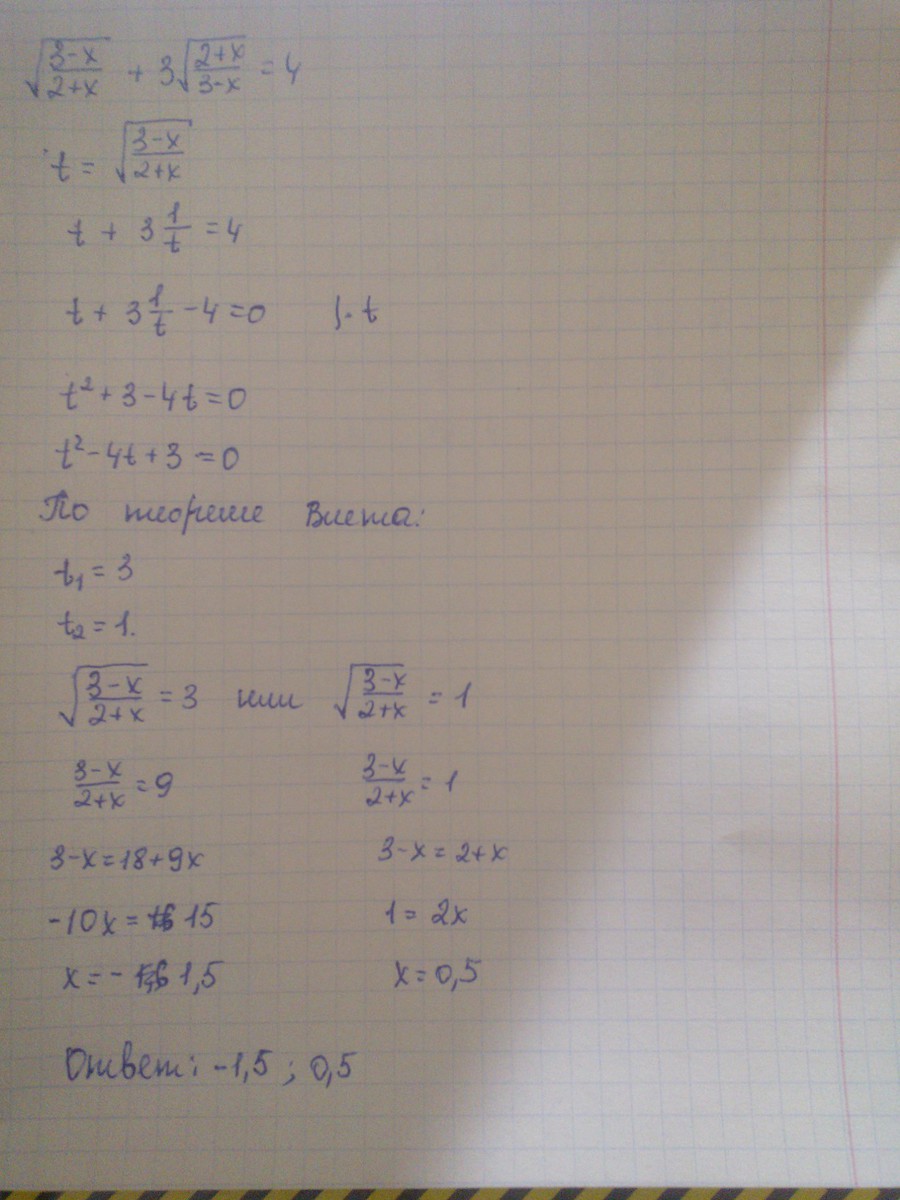 √((3-x)/(2+x)) + 3√((2+x)/(3-x)) = 4
t = √((3-x)/(2+x))
t + 3 1/t = 4
t + 3 1/t - 4 = 0 |· t
t² + 3 - 4t = 0
t² - 4t + 3 = 0
По теореме Виета:
t₁ = 3
t₂ = 1.
√((3-x)/(2+x)) = 3 или √((3-x)/(2+x)) = 1
(3-x)/(2+x) = 9 (3-x)/(2+x) = 1
3-x = 18+9x 3-x = 2+x
-10x = 15 1 = 2x
x = - 1,5 x = 0,5
Ответ: -1,5 ; 0,5